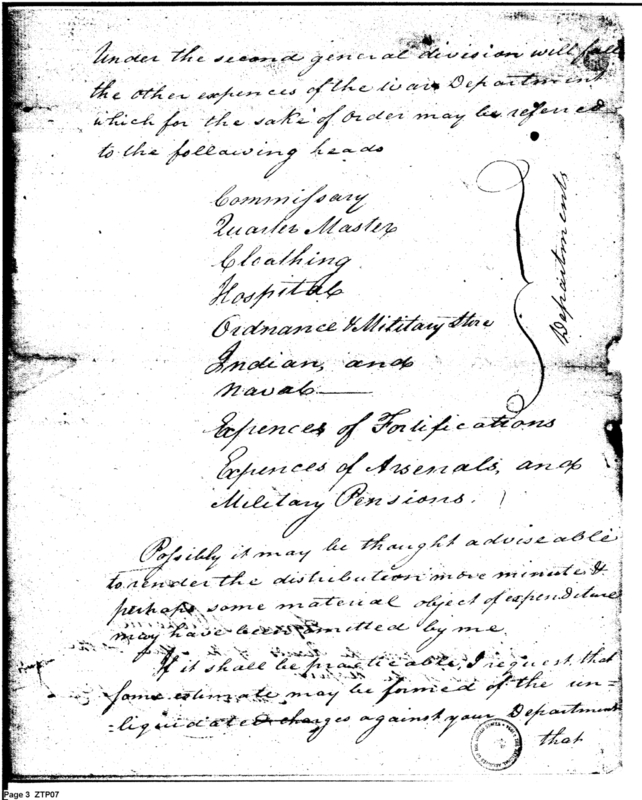 Under the second general division will fall
the other expences of the War Department
which for the sake of order may be referred
to the following heads
Commissary
Quarter Master
Cloathing
Hospital
Ordnance & Military Store
Indian, and
Naval
Departments
Expences of Fortifications
Expences of Arsenals, and
Military Pensions.
Possibly it may be thought adviseable
to render the distribution more minute &
perhaps some material object of expenditure
may have been omitted by me.
If it shall be practicable, I request that
some estimate may be formed of the un=
=liquidated charges against your Department
that
Page 3 ZTP07